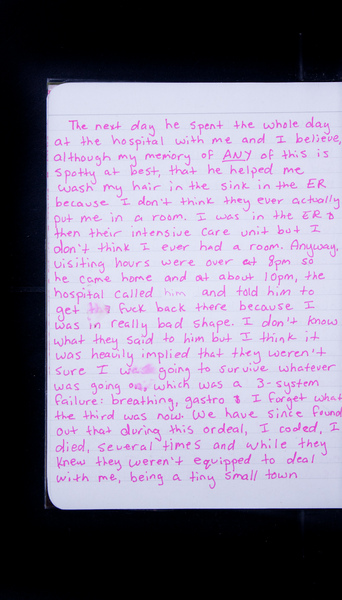 The next day he spent the whole day
at the hospital with me and I believe,
although my memory of ANY of this is
spotty at best, that he helped me
wash my hair in the sink in the ER
because I don't think they ever actually
put me in a room. I was in the ER &
then their intensive care unit but I
don't think I ever had a room. Anyway.
visiting hours were over at 8pm so
he came home and at about 10pm, the
hospital called him and told him to
get fuck back there because I
was in really bad shape. I don't know
what they said to him but I think it
was heavily implied that they weren't
sure I was going to survive whatever
was going on, which was a 3-system
failure: breathing, gastro & I forget what
the third was now. We have since found
out that during this ordeal, I coded, I
died, several times and while they
knew they weren't equipped to deal
with me, being a tiny small town